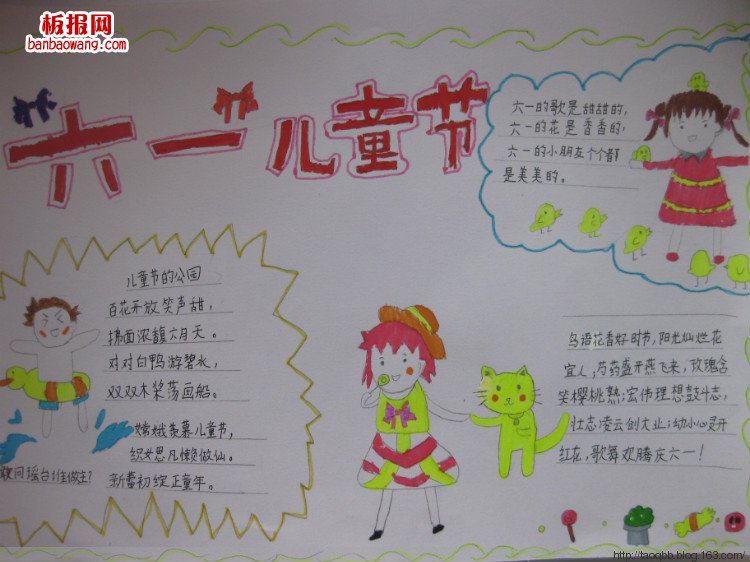 板报网
banbaowang.com
六一儿童节
六一的歌是甜甜的，
六一的花是香香的，
六一的小朋友个个都
是美美的。
儿童节的公园
百花开放笑声甜，
拂面浓馥六月天。
对对白鸭游碧水，
双双木桨荡画船。
嫦娥羡慕儿童节，
织女思凡懒做仙。
敢问瑶台谁做主？
新蕾初绽正童年。
鸟语花香好时节，阳光灿烂花
宜人，芍药盛开燕飞来，玫瑰含
笑樱桃熟；宏伟理想鼓斗志，
壮志凌云创大业；幼小心灵开
红花，歌舞欢腾庆六一！
http://taoqbb.blog.163.com/